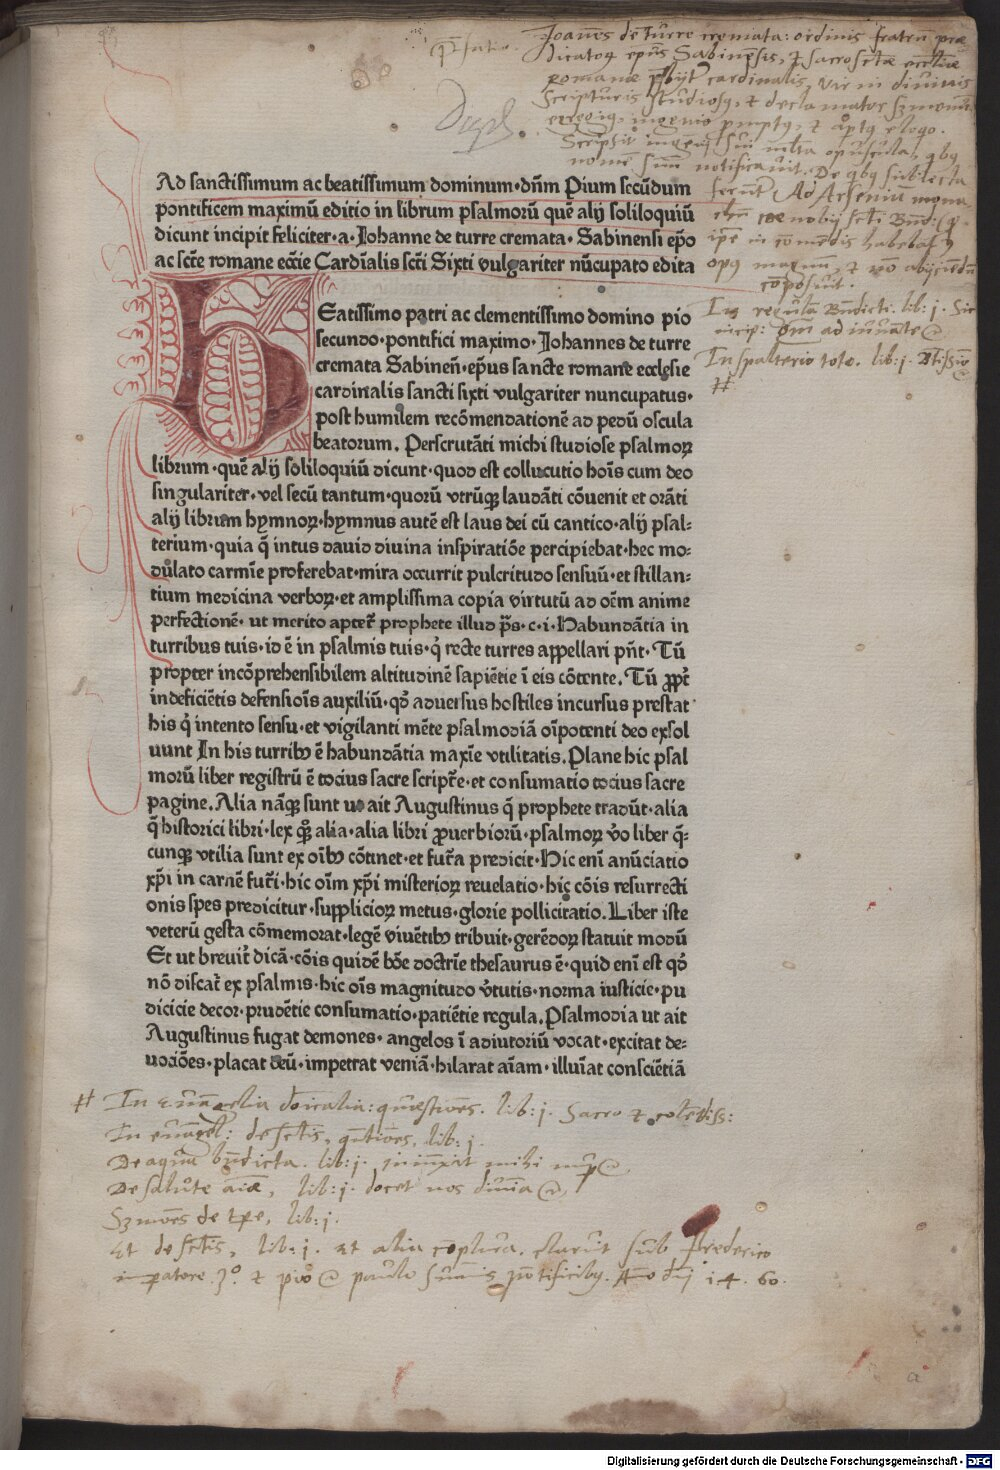 Joannes de Turre cremata: ordinis fratrũ præ
dicatoꝝ epũs Sabineñsis, & sacrosctæ eccliæ
romanæ p̃sbyt cardinalis, vir in divinis
Scripturis studiosꝯ, & declamator sermonũ
egregiꝯ, ingenio
Scripsit ingenij sui mlta opuscula, qbꝯ
nomẽ suũ notificavit. De qbꝯ subiecta
ferunt̃ Ad Arseniũ mona
chũ
ipse in cõmendis habebat
opꝯ magnũ, &
cõposuit.
In regulã Bñdicti. lib: j. Sic
incip:
In psalterio toto. lib: j. Btissio
#
Dupl.
Ad sanctissimum ac beatissimum dominum·dñm Pium secũdum
pontificem maximũ editio in librum psalmorũ quẽ alij soliloquiũ
dicunt incipit feliciter·a·Johanne de turre cremata·Sabinensi ep̃o
ac scẽe romane eccĩe Cardĩalis scĩti Sixti vulgariter nũcupato edita
BEatissimo patri ac clementissimo domino pio
secundo·pontifici maximo·Johannes de turre
cremata Sabineñ·ep̃us sancte romane ecclesie
cardinalis sancti sixti vulgariter nuncupatus·
post humilem recõmendationẽ ad pedũ oscula
beatorum. Perscrutãti michi studiose psalmoꝝ
librum·quẽ alij soliloquiũ dicunt·quod est collucutio hoĩs cum deo
singulariter·vel secũ tantum·quorũ vtrũqꝫ laudãti cõuenit et orãti
alij librum hymnoꝝ·hymnus autẽ est laus dei cũ cantico·alij psal-
terium·quia q̃ intus dauid diuina inspiratiõe percipiebat·hec mo-
dulato carmĩe proferebat·mira occurrit pulcritudo sensuũ·et stillan-
tium medicina verboꝝ·et amplissima copia virtutũ ad oẽm anime
perfectionẽ·ut merito aptet̃ prophete illud p̃s·c·i·Habundãtia in
turribus tuis·id ẽ in psalmis tuis·q̃ recte turres appellari pñt·Tũ
propter incõprehensibilem altitudinẽ sapiẽtie ĩ eis cõtente. Tũ ꝓpt̃
indeficiẽtis defensioĩs auxiliũ·qd̃ aduersus hostiles incursus prestat
his q̃ intento sensu·et vigilanti mẽte psalmodiã oĩpotenti deo exsol
uunt In his turribꝯ ẽ habundãtia maxĩe vtilitatis. Plane hic psal
morũ liber registrũ ẽ tocius sacre script̃e·et consumatio tocius sacre
pagine. Alia nãqꝫ sunt ut ait Augustinus q̃ prophete tradũt·alia
q̃ historici libri·lex qꝫ alia·alia libri ꝓuerbiorũ·psalmoꝝ v̊o liber q̃-
cunqꝫ vtilia sunt ex oĩbꝯ cõtinet·et fut̃a predicit·Hic enĩ anũciatio
xp̃i in carnẽ fut̃i·hic oĩm xp̃i misterioꝝ reuelatio·hic cõis resurrecti
onis spes predicitur·supplicioꝝ metus·glorie pollicitatio. Liber iste
veterũ gesta cõmemorat·legẽ viuẽtibꝯ tribuit·gerẽdoꝝ statuit modũ
Et ut breuit̃ dicã·cõis quidẽ bõe doctrĩe thesaurus ẽ·quid enĩ est qd̃
nõ discat̃ ex psalmis·hic oĩs magnitudo v̊tutis·norma iusticie·pu
dicicie decor·prudẽtie consumatio·patiẽtie regula. Psalmodia ut ait
Augustinus fugat demones·angelos ĩ adiutoriũ vocat·excitat de-
uociões·placat deũ·impetrat veniã·hilarat aĩam·illuĩat consciẽtiã
# In evãgelia dõicalia: quæstiones. lib: j.
In evãgel: de sctis, quẽstiões, lib: j.
De aqua bñdicta. lib: j. iniunxit mihi nup
De salute aiæ, lib: j. docet nos divina
Smões de tpe, lib: j.
Et de sctis, lib: j. Et alia cõplura. claruit sub Frederico
imperatore 3º. & pio @ paulo sum̃is põtificibꝯ. Año dñj 14.60.
a
Digitalisierung gefördert durch die Deutsche Forschungsgemeinschaft - DFG